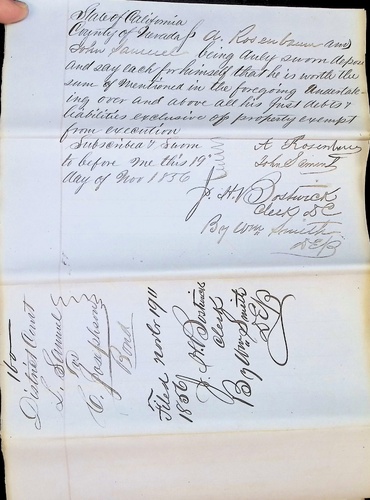 State of California
County of Nevada } A. Rosenbaum and
John being duly sworn depose
and say each for himself that he is worth the
sum of mentioned in the foregoing undertak-
ing over and above all his just debts &
liabilities exclusive of property exempt
from execution
Subscribed & Sworn
to before me this 19"
day of Nov 1856
A Rosenbaum
John
J. H. Bostwick
Clerk DC
By Wm Smith
160
District Court
L. Samuel
vs
C. Josephson
Bond
Filed Nov 19th
1856
J. H. Bostwick
Clerk
By Wm Smith